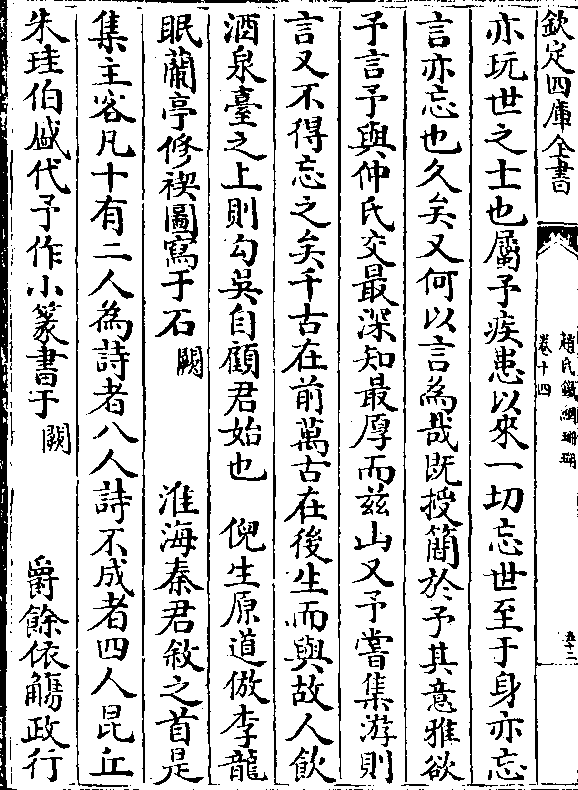 欽定四庫全書
趙氏鐵網珊瑚
卷十四
亦玩世之士也屬予疾患以來一切忘世至于身亦忘
言亦忘也久矣又何以言為哉既授簡於予其意雅欲
予言予與仲氏交最深知最厚而茲山又予嘗集游則
言又不得忘之矣千古在前萬古在後生而與故人飲
酒泉臺之上則勾吳自顧君始也 倪生原道倣李龍
眠蘭亭修禊圖寫于石闕 淮海秦君敘之首是
集主客凡十有二人為詩者八人詩不成者四人昆丘
朱珪伯盛代予作小篆書于闕 爵餘依觴政行